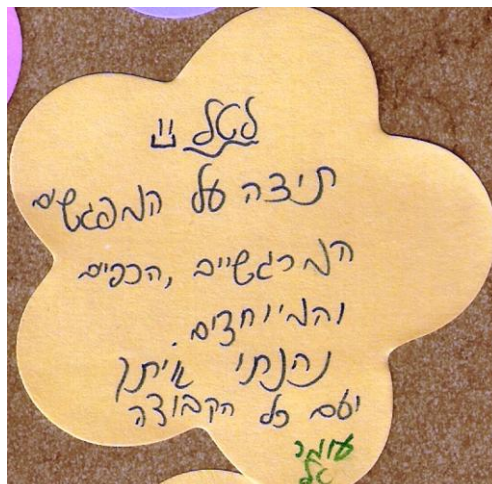 לטל
תודה על המפגשים
המרגשים, הכפים
והמיוחדים.
נהנתי איתך
ועם כל הקבוצה
עומר
טל